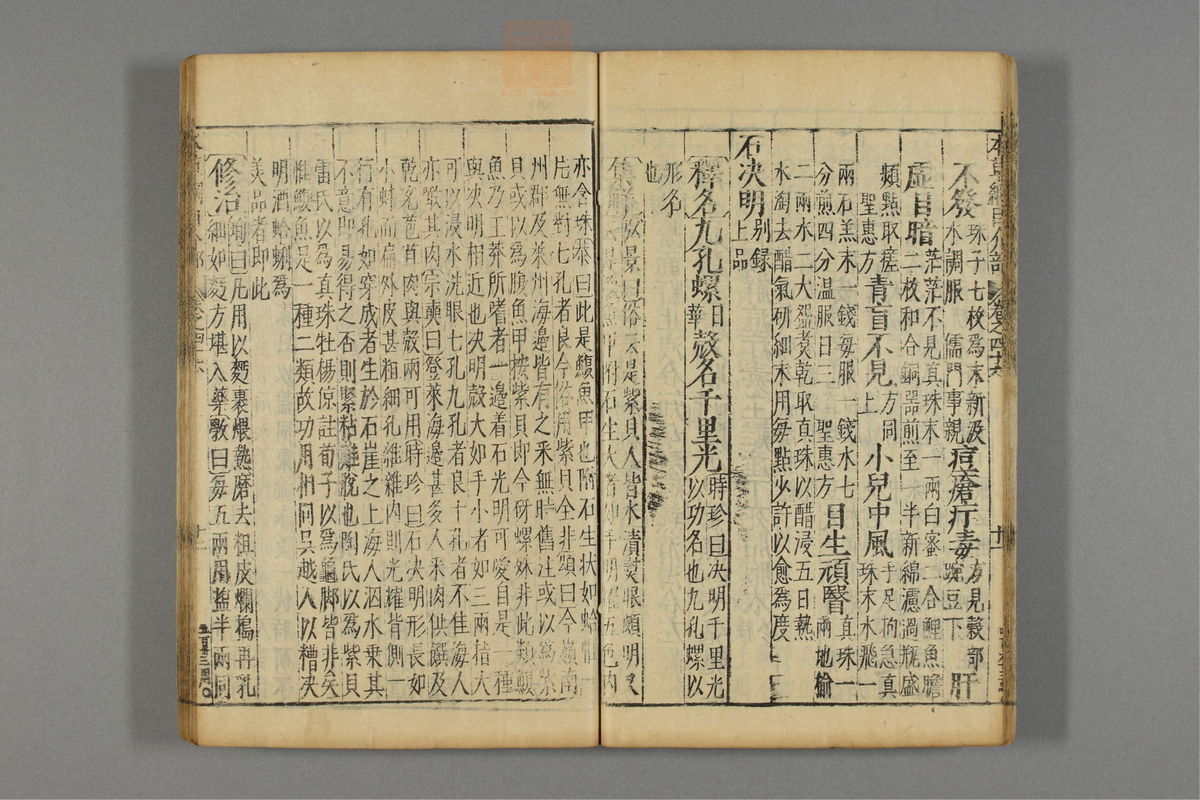 本草綱目介部 卷之四十六 十一
不發 珠子七枚爲末新汲水調服 儒門事親 痘瘡疔毒 方見穀部豌豆下 肝
虛目暗 茫茫不見真珠末一兩白蜜二合鯉魚膽二枚和合銅器煎至一半新綿濾過瓶盛
頻點取瘥 聖惠方 青盲不見 方同上 小兒中風 手足拘急真珠末水飛一
兩石羔末一錢每服一錢水七分煎四分溫服日三 聖惠方 目生頑翳 真珠一兩地榆
二兩水二大盌煑乾取真珠以醋浸五日熱水淘去醋氣研細末用每點少許以愈爲度
石決明 別錄上品
釋名 九孔螺 日華 殼名千里光 時珍曰決明千里光以功名也九孔螺以
形名也
集解 弘景曰俗云是紫貝人皆水漬熨眼頗明又云是鰒魚甲附石生大者如手明耀五色內
亦含珠恭曰此是鰒魚甲也附石生狀如蛤惟一
片無對七孔者良今俗用紫貝全非頌曰今嶺南
州郡及萊州海邊皆有之采無時舊注或以爲紫
貝或以爲鰒魚甲按紫貝即今砑螺殊非此類鰒
魚乃王莽所嗜者一邊着石光明可愛自是一種
與決明相近也決明殼大如手小者如三兩指大
可以浸水洗眼七孔九孔者良十孔者不佳海人
亦噉其肉宗奭曰登萊海邊甚多人采肉供饌及
乾充苞苴肉與殼兩可用時珍曰石決明形長如
小蚌而扁外皮甚粗細孔雜雜內則光耀背側一
行有孔如穿成者生於石崖之上海人泅水乗其
不意即易得之否則緊粘難脫也陶氏以爲紫貝
雷氏以爲真珠牡楊倞註荀子以爲龜脚皆非矣
惟鰒魚是一種二類故功用相同吳越人以糟決
明酒蛤蜊爲
美品者即此
修治 珣曰凡用以麪裹煨熟磨去粗皮爛搗再乳細如麪方堪入藥斆曰每五兩用鹽半兩同